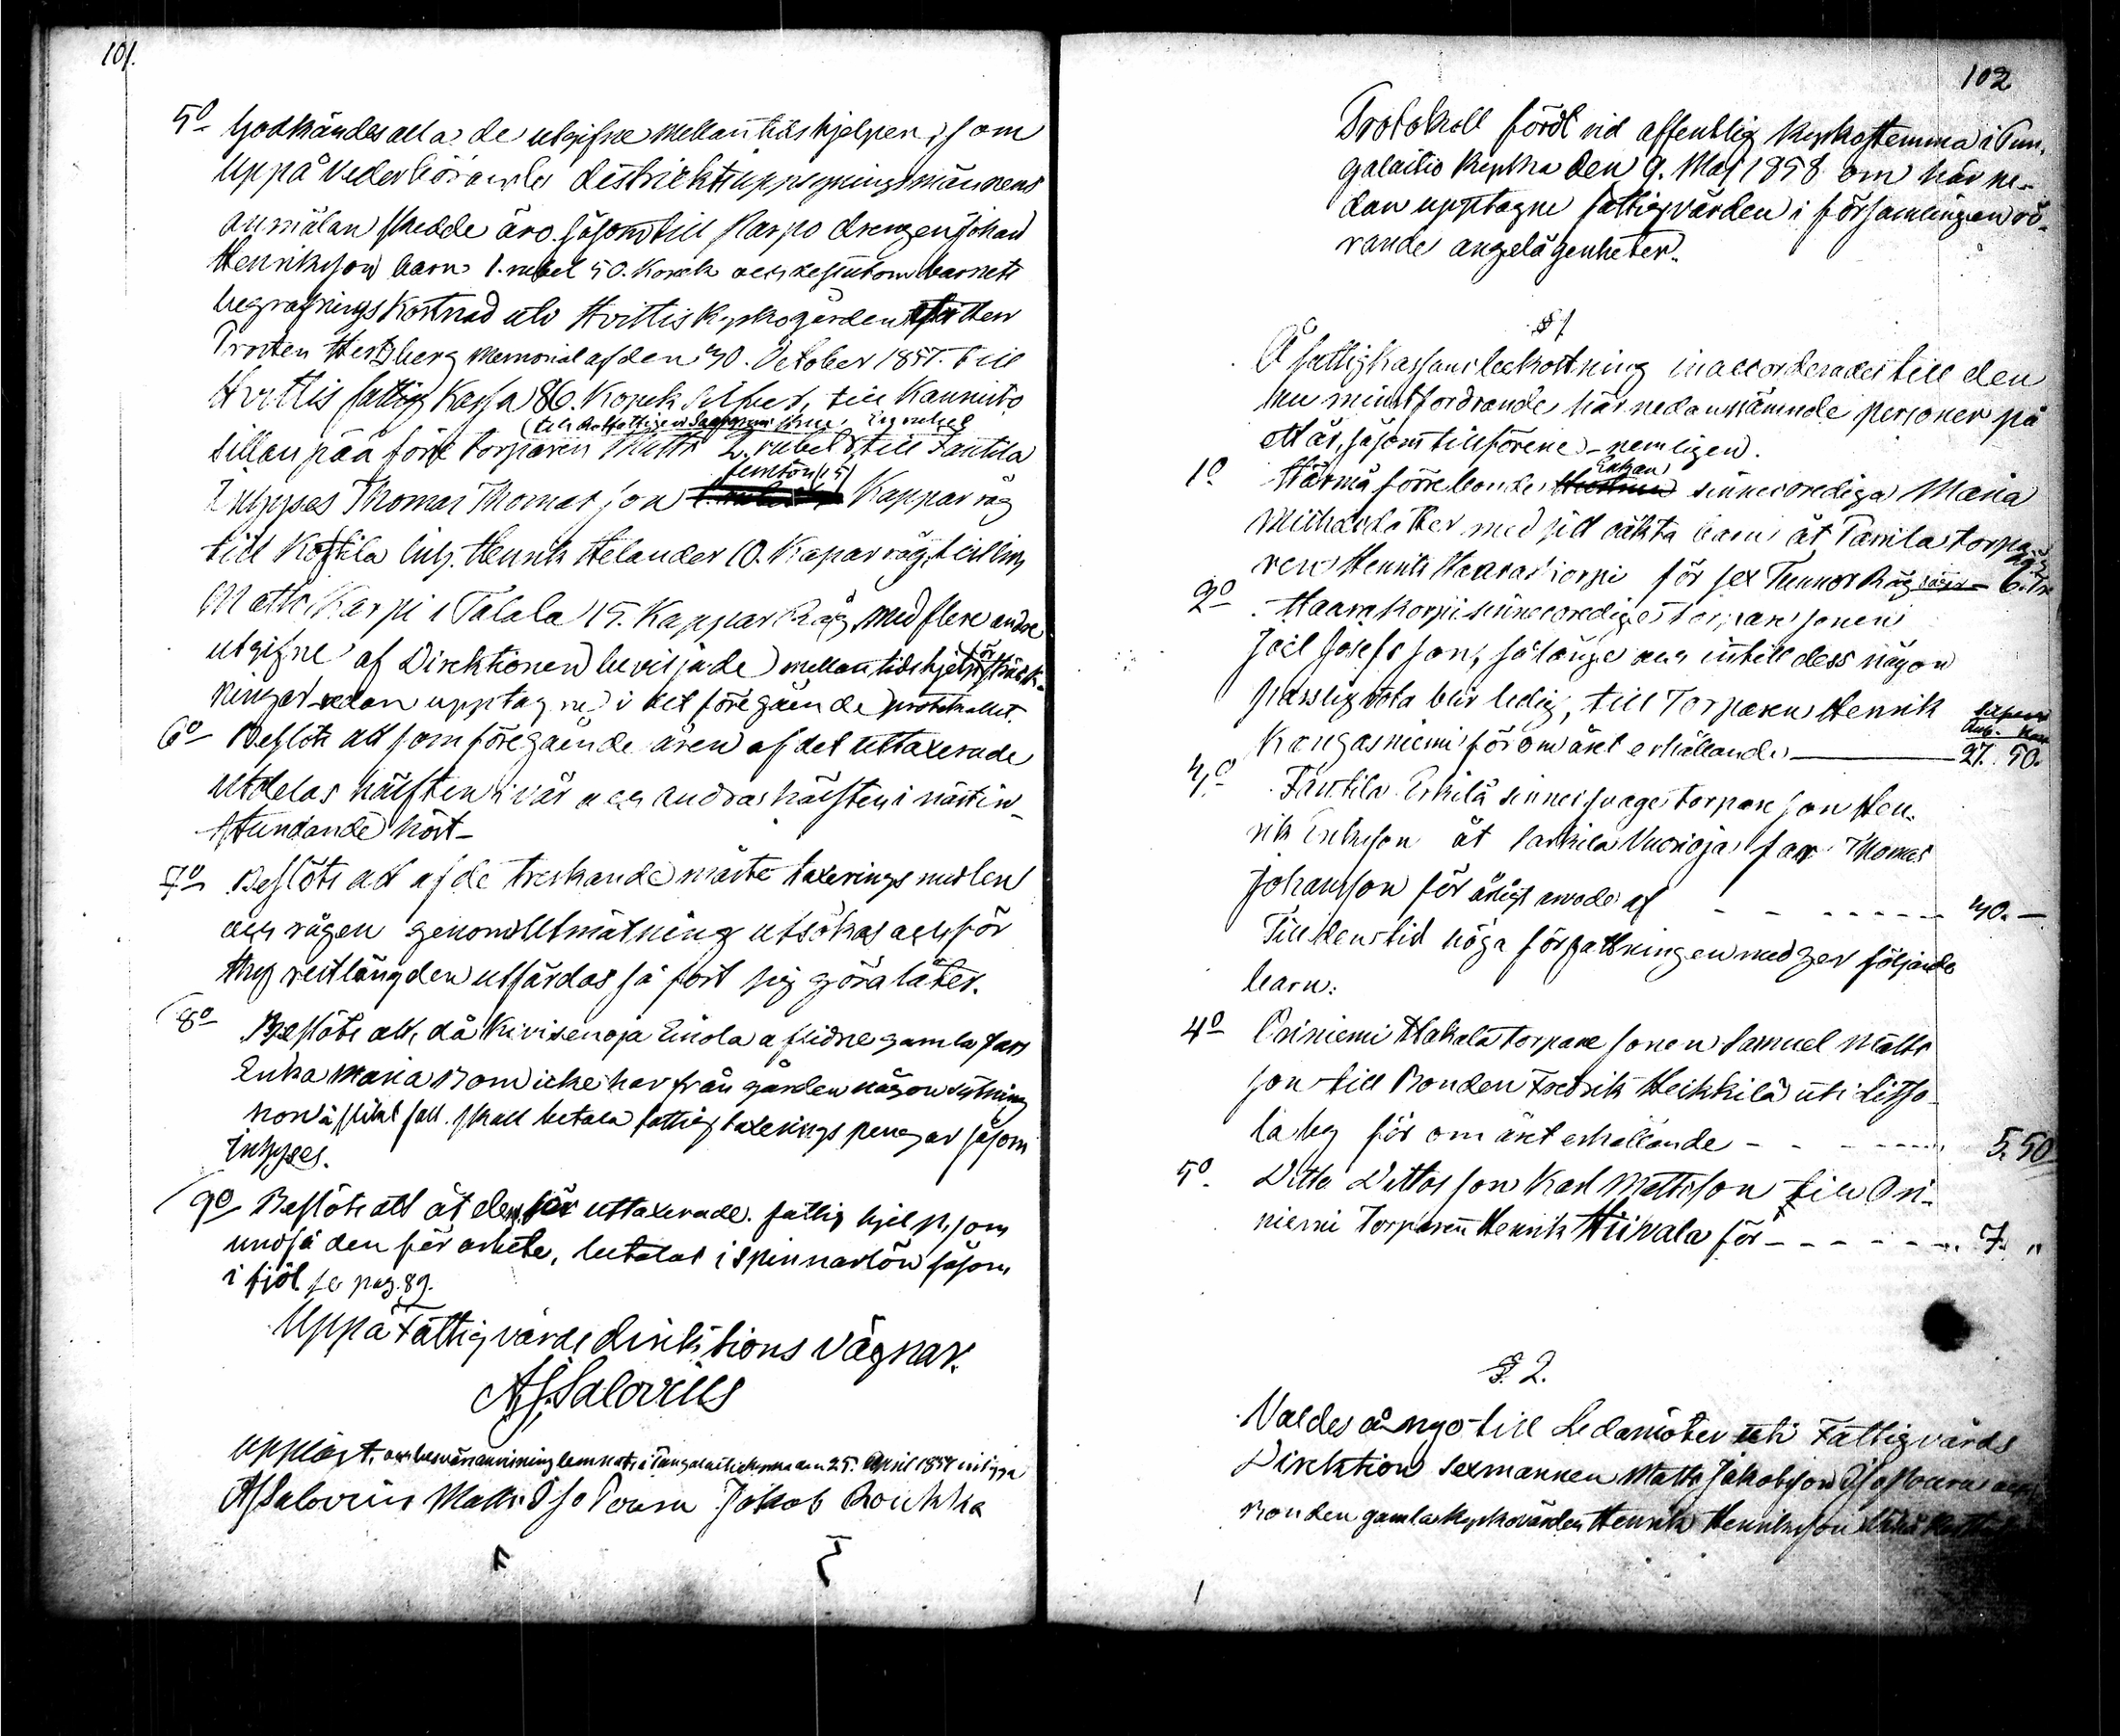 101.
5o Godkändes alla de utgifne mellantids hjelpen, som
uppå vederbörande districktsuppsyningsmännens
anmälan skedde äro såsom till Karpo drengen Johan
Henriksson barn 1. rubel 50. Kopek och dessutom barnets
begrafnings kostnad uti Hvittis Kyrkogården efter Herr
Prosten Hertzberg Memorial af den 30. October 1857. till
Hvittis fattig Kassa 86. Kopek Silfver, till Kannisto
en rubel
sillanpää förre torparen Matts 2. rubel till Fantila
femton (15)
Inhyses Thomas Thomasson Kappar råg
till Kostila Inh. Henrik Helander 10. Kapar råg, till Inh
Matts Karpi i Talala 15. Kappar Råg, med flere andre
utgifne af Direktionen beviljade mellantids hjelp
ningar redan upptagne i det föregående protokollet.
6o Beslöts att som föregående åren af det uttaxerade
utdelas hälften i vår och andra hälften i nästin-
stundande höst-
7o Beslöts att af de treskande måste taxerings medlen
och rågen genom Utmätning utsökas och för
thy restlängden utfärdas så fort sig göra låter.
8o Beslöts att, då Kivisenoja Einola aflidne gamla fars
Enka Maria som icke har från gården någon sytning
hon i slikt fall skall betala fattig taxerings pengar såsom
Inhyses.
9o Beslöts att åt den för uttaxerade fattig hjelp, som
undfå den för arbete, betalas i spinnarlön såsom
i fjöl se pag. 89.
Uppå Fattigvårds direktions vägnar.
A J Salovius
Uppläst, och besvärsanvisning lemnats i Pungalaitio kyrka den 25. April 1858 intyga
A J Salovius Matts Iso Pouru Jakob Roukka
102
Protokoll fördt vid offentlig Kyrkostemma i Pun-
galaitio Kyrka den 9. Maj 1858 om här ne-
dan upptagne fattigvården i församlingen rö-
rande angelägenheter.
§ 1
Å fattig Kassans bekostning inaccorderades till den
den minst fordrande här nedannämnde personer på
ett år, såsom tillförene - nemligen.
Enkan
1o Härmä förre bonde sinnesvrediga Maria
Michaelsdotter med sitt oäkta barn åt Panila torpa-
ren Henrik Haavarkorpi för sex Tunnor Råg 6. Tr
2o Haavarkorpi sinnesvredige torpare sonen
Joel Josefsson, så länge och intill dess någon
passlig rota blir ledig, till Torparen Henrik
Kangasniemi för om året erhållande 27. 50.
3o Fantila Erkilä sinnessvage torpare son Hen-
rik Eriksson åt Sarkila Vuorioja far Thomas
Johansson för årligt arvode af 30. —
Till den tid höga författningen medger följande
barn:
4o Oriniemi Hakala torpare sonen Samuel Matts
son till Bonden Fredrik Heikkilä uti Litso-
la by för om året erhållande 5. 50
5o Ditto Dittos son Karl Mattsson till Ori-
niemi Torparen Henrik Hiivala för 7. "
§. 2.
Valdes å nyo till Ledamöter uti Fattigvårds
Direktion sexmannen Matts Jakobsson Iso Pouru och
Bonden gamla kyrkovärden Henrik Henriksson